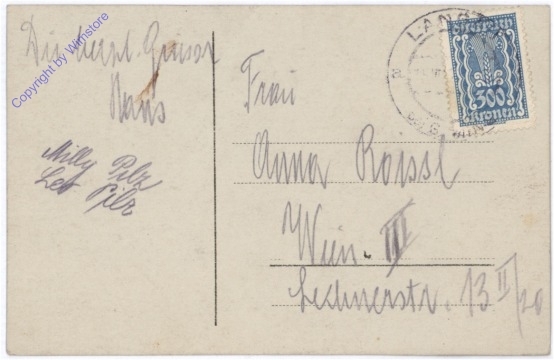 Die herzl. Grüsse
Hans
Milly Pilz
Leo Pilz
Copyright by Wimstore
Frau
Anna Rossl
Wien. III
Lechnerstr. 13 II/20
LANGE
300
Kronen